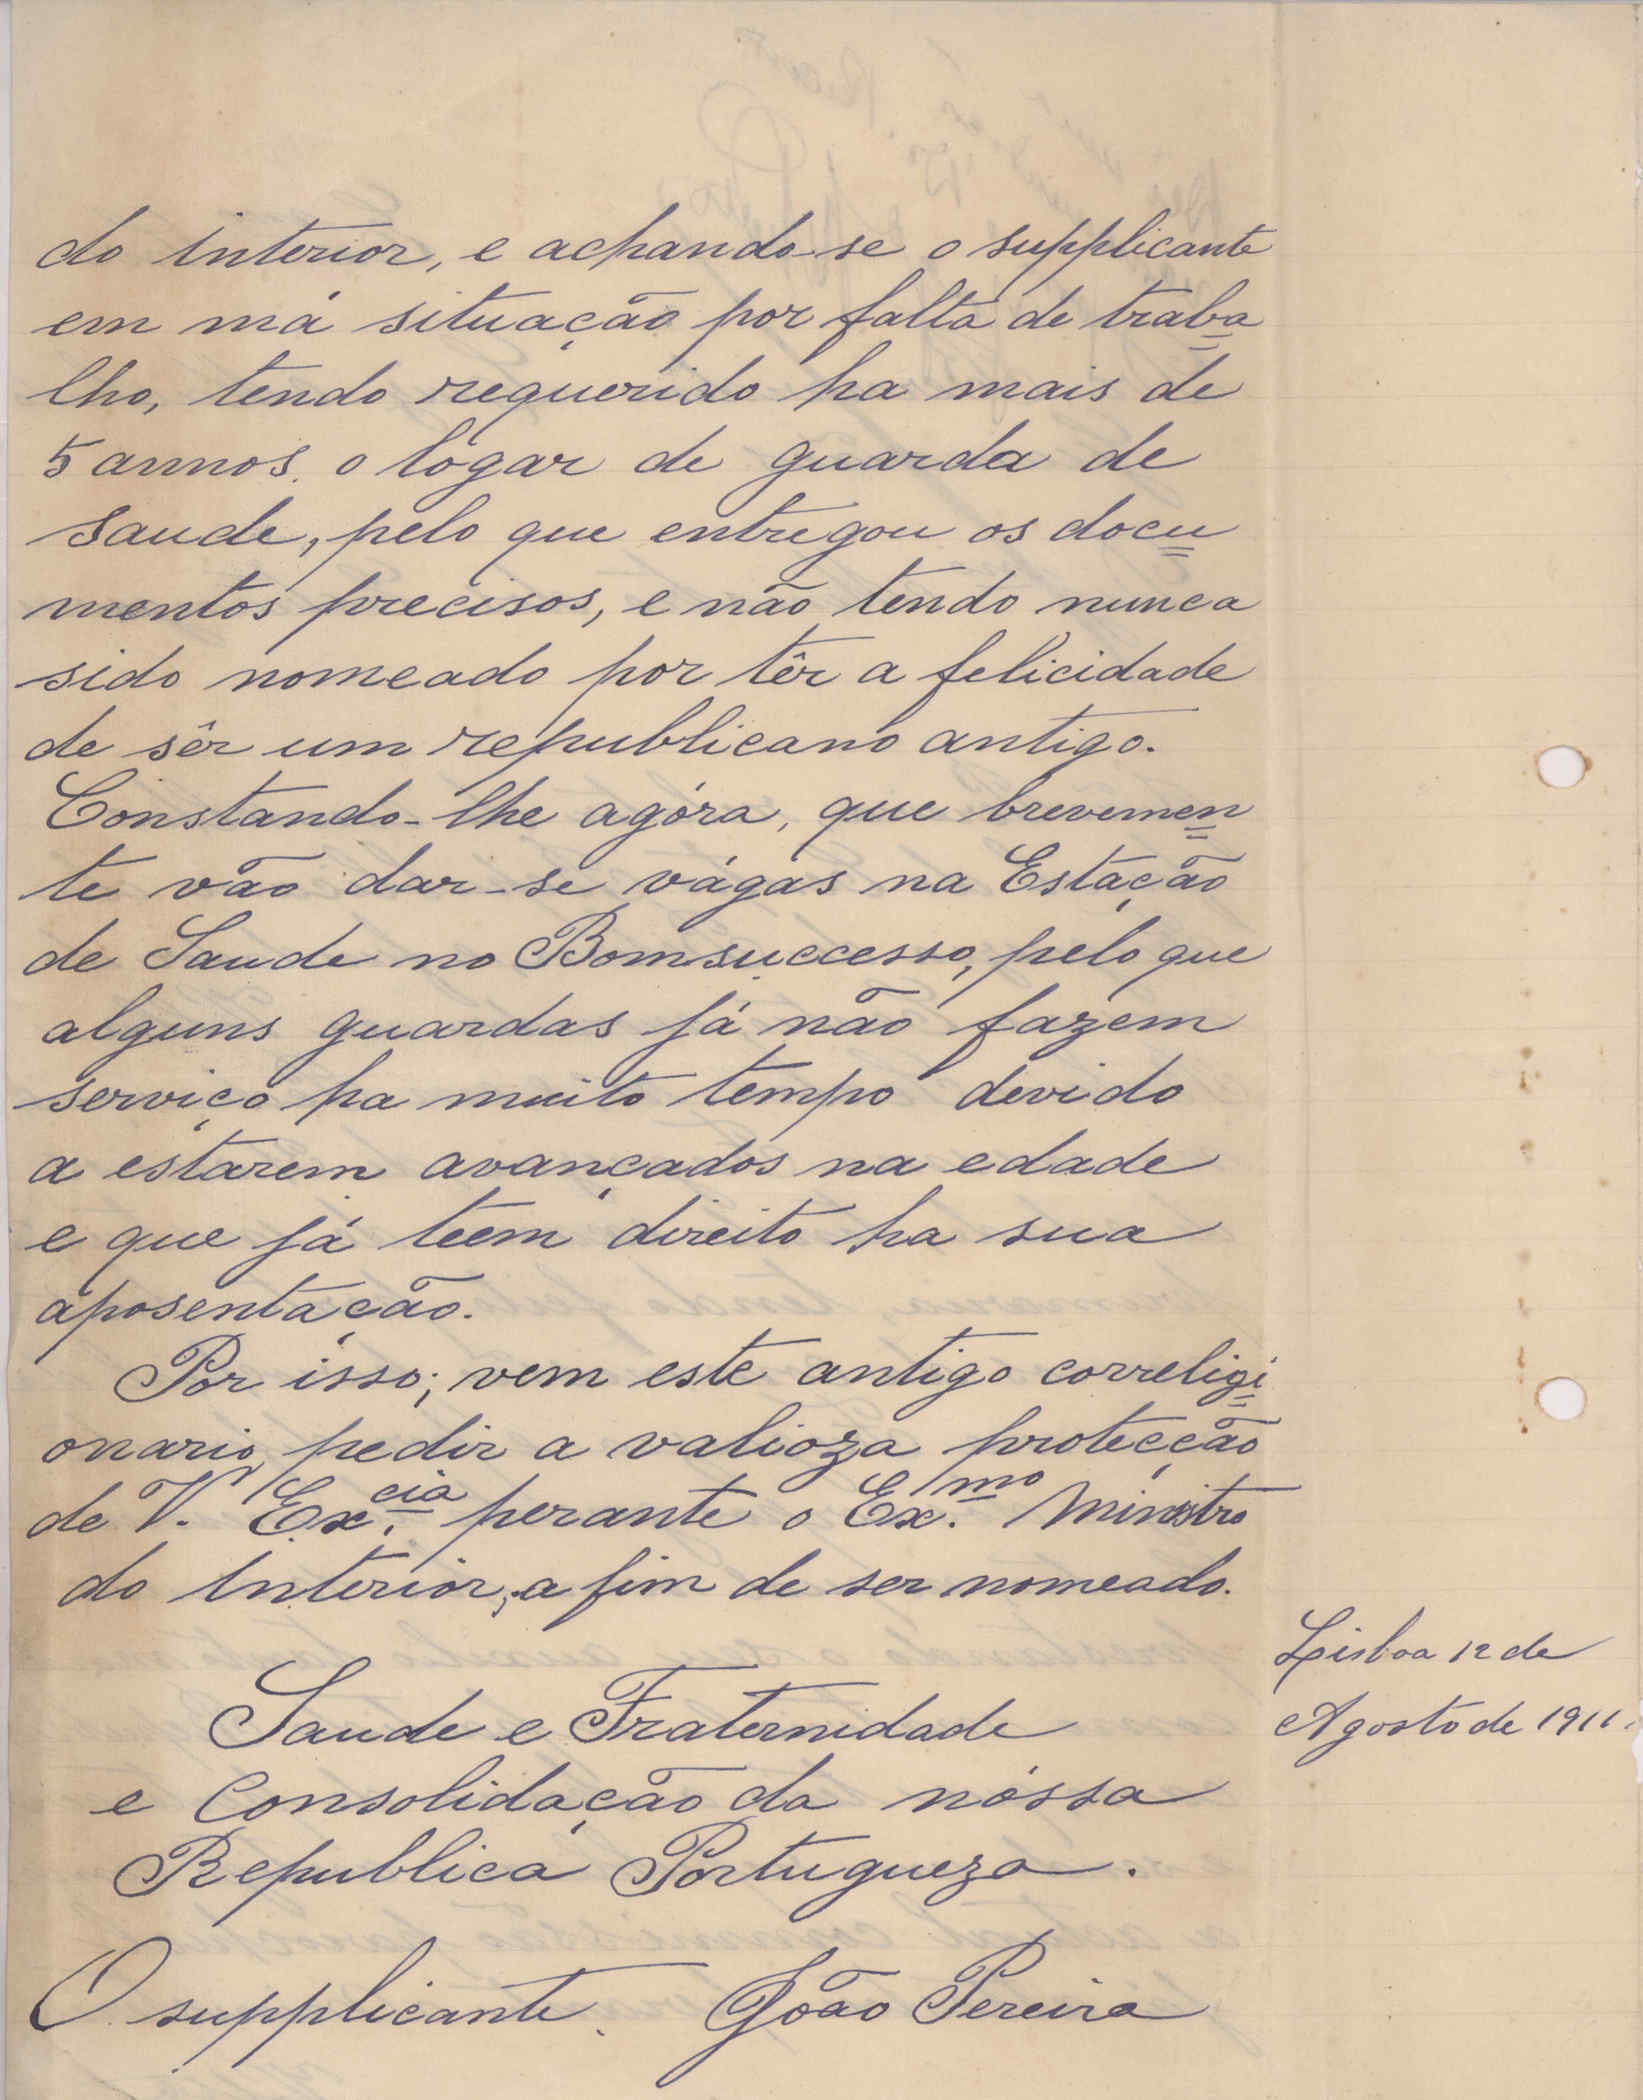 do interior, e achando-se o supplicante
em má situação por falta de traba=
lho, tendo requerido ha mais de
5 annos. o logar de guarda de
saude, pelo que entregou os docu=
mentos precisos, e não tendo nunca
sido nomeado por têr a felicidade
de sêr um republicano antigo.
Constando-lhe agóra, que brevemen=
te vão dar-se vágas na Estação
de Saude no Bomsuccesso, pelo que
alguns guardas já não fazem
serviço ha muito tempo devido
a estarem avançados na edade
e que já teem direito ha sua
aposentação.
Por isso; vem este antigo correligi=
onario, pedir a valioza protecção
de V. Ex.cia perante o Ex.mo Ministro
do Interior, a fim de ser nomeado.
Lisboa 12 de
Agosto de 1911.
Saude e Fraternidade
e Consolidação da nóssa
Republica Portugueza.
O supplicante. João Pereira